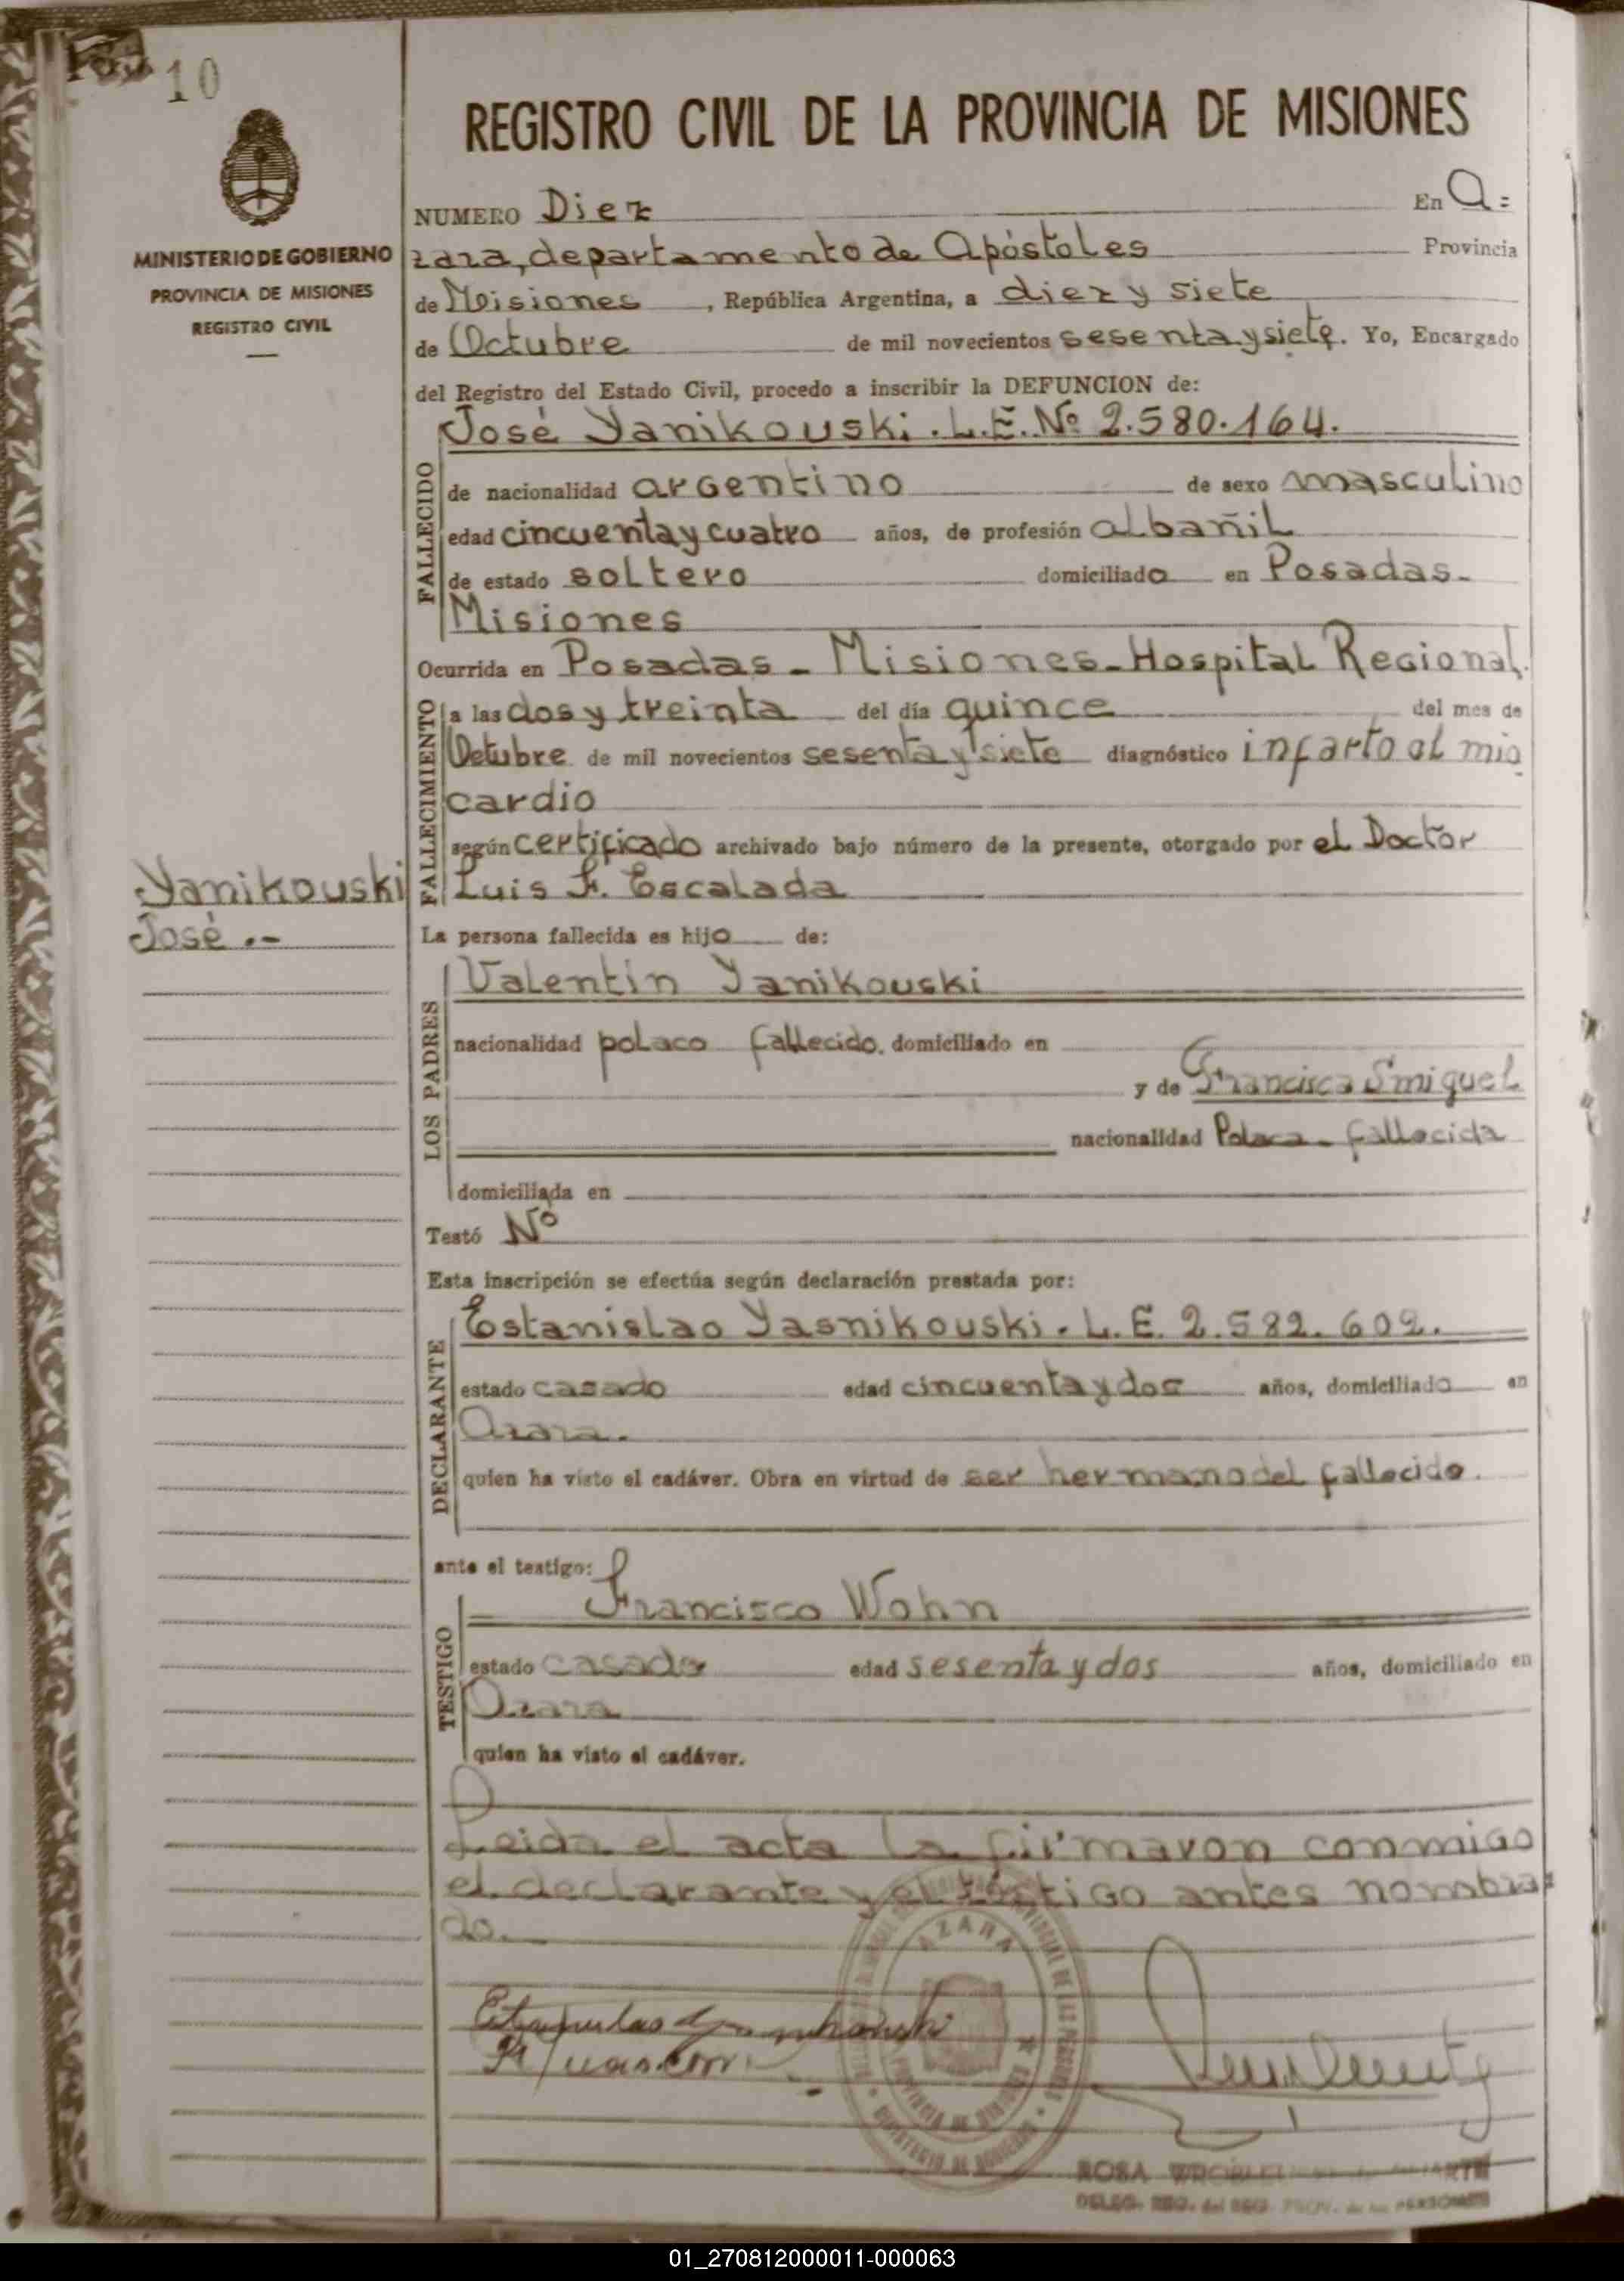 10
REGISTRO CIVIL DE LA PROVINCIA DE MISIONES
MINISTERIO DE GOBIERNO
PROVINCIA DE MISIONES
REGISTRO CIVIL
NUMERO Diez En A=
zara, departamento de Apóstoles Provincia
de Misiones, República Argentina, a diez y siete
de Octubre de mil novecientos sesenta y siete. Yo, Encargado
del Registro del Estado Civil, procedo a inscribir la DEFUNCION de:
José Yanikouski. L.E. Nº 2.580.164.
FALLECIDO
de nacionalidad argentino de sexo masculino
edad cincuenta y cuatro años, de profesión albañil
de estado soltero domiciliado en Posadas-
Misiones
Ocurrida en Posadas - Misiones - Hospital Regional.
FALLECIMIENTO
a las dos y treinta del día quince del mes de
Octubre de mil novecientos sesenta y siete diagnóstico infarto al mio
cardio
según certificado archivado bajo número de la presente, otorgado por el Doctor
Luis F. Escalada
Yanikouski
José .-
La persona fallecida es hijo de:
LOS PADRES
Valentín Yanikouski
nacionalidad polaco fallecido. domiciliado en
y de Francisca Smiguel
nacionalidad Polaca - fallecida
domiciliada en
Testó Nº
Esta inscripción se efectúa según declaración prestada por:
DECLARANTE
Estanislao Yasnikouski. L.E. 2.582.602.
estado casado edad cincuenta y dos años, domiciliado en
Azara.
quien ha visto el cadáver. Obra en virtud de ser hermano del fallecido.
ante el testigo:
TESTIGO
Francisco Wohn
estado casado edad sesenta y dos años, domiciliado en
Azara
quien ha visto el cadáver.
Leida el acta la firmaron conmigo
el declarante y el testigo antes nombra=
do.
AZARA
PROVINCIA DE MISIONES
ROSA
DELEG. REG. del REG. PROV. de las PERSONAS
01_270812000011-000063